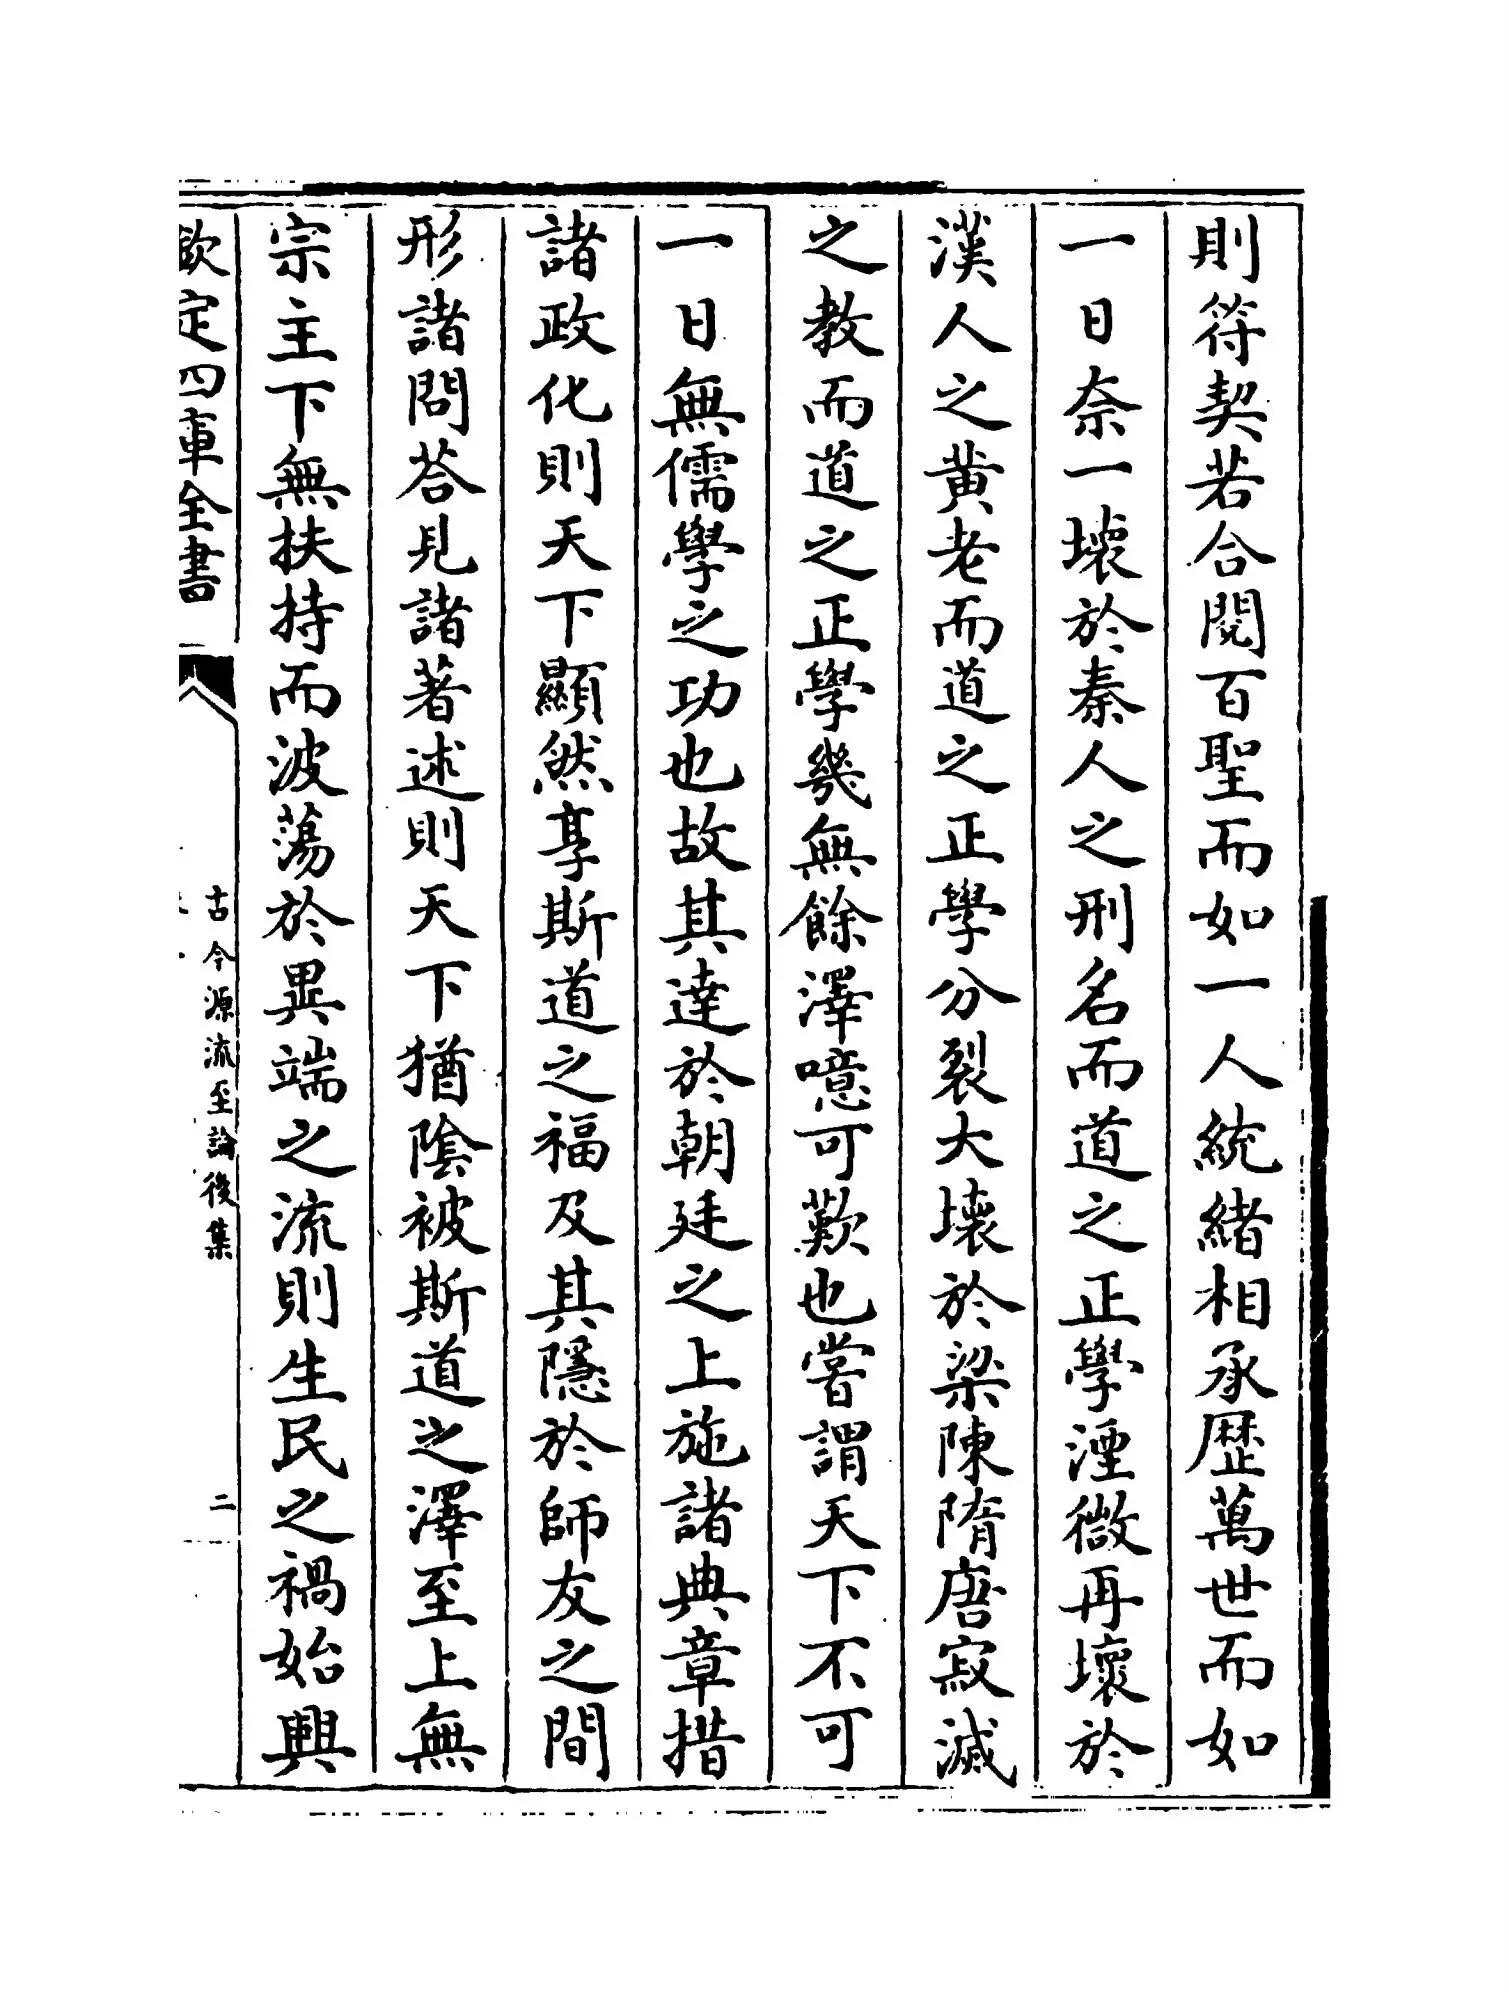 則符契若合閱百聖而如一人統緒相承歷萬世而如
一日奈一壞於秦人之刑名而道之正學湮微再壞於
漢人之黄老而道之正學分裂大壞於梁陳隋唐寂滅
之教而道之正學幾無餘澤噫可歎也嘗謂天下不可
一日無儒學之功也故其達於朝廷之上施諸典章措
諸政化則天下顯然享斯道之福及其隱於師友之間
形諸問荅見諸著述則天下猶陰被斯道之澤至上無
宗主下無扶持而波蕩於異端之流則生民之禍始興
欽定四庫全書
古今源流至論後集
二